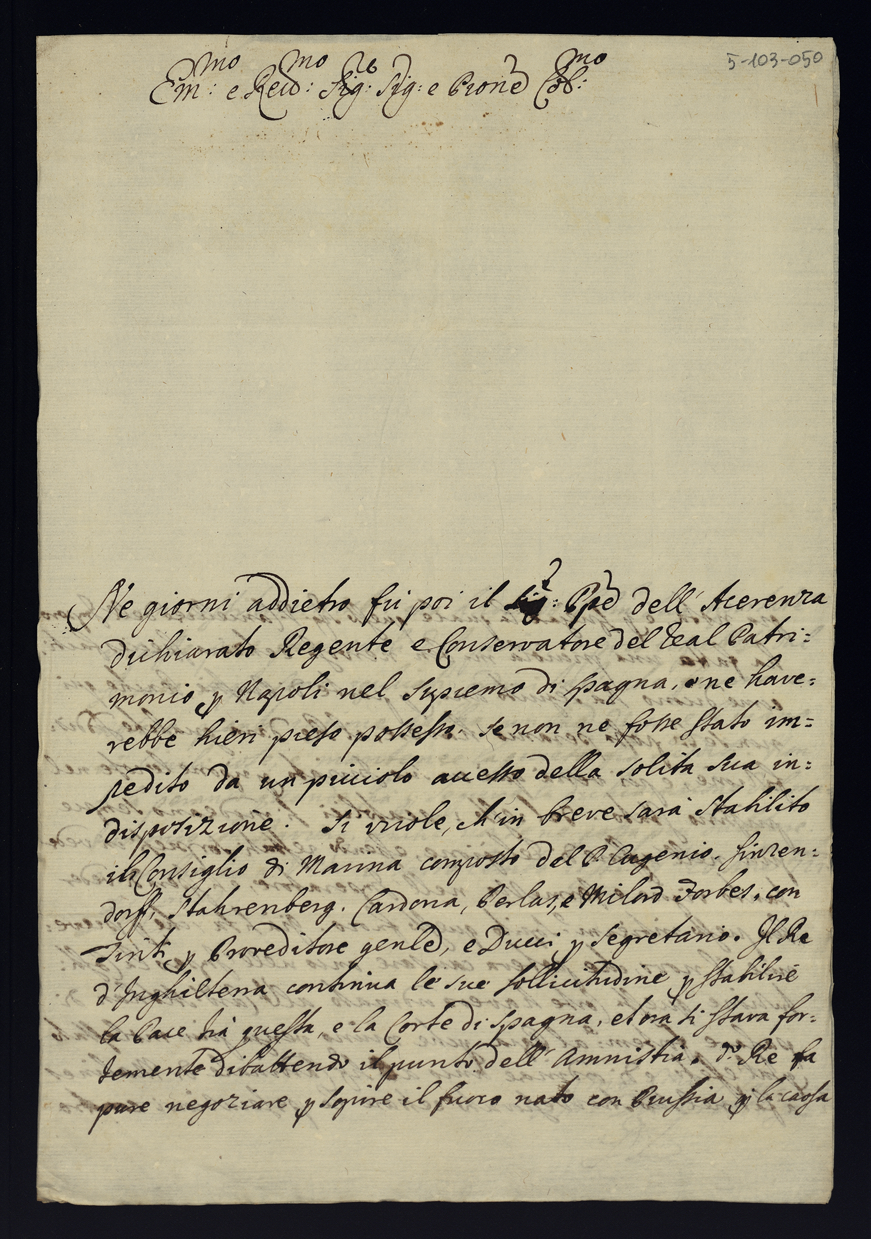 5-103-050
Em:mo e Revd:mo Sig:re Sig: e Pron̄e Col:mo
Ne giorni addietro fù poi il Sig:r Pp̄e dell'Acerenza
dichiarato Regente e Conservatore del Real Patri:
monio p Napoli nel Supremo di Spagna, e ne have:
rebbe hieri preso possesso, se non ne fosse stato im:
pedito da un picciolo accesso della solita sua in:
disposizione. Si vuole, ch'in breve sarà stabilito
il Consiglio di Marina composto del P Eugenio, Sinzen:
dorff, Stahrenberg, Cardona, Perlas, e Milord Forbes, con
p Proveditore gen̄le, e Ducci p Segretario. Il Re
d'Inghilterra continua le sue sollicitudine p stabilire
la Pace trà questa, e la Corte di Spagna, et ora si stava for:
temente dibattendo il punto dell'Amnistia. d:o Re fa
pure negoziare p sopire il fuoco nato con Prussia p la causa